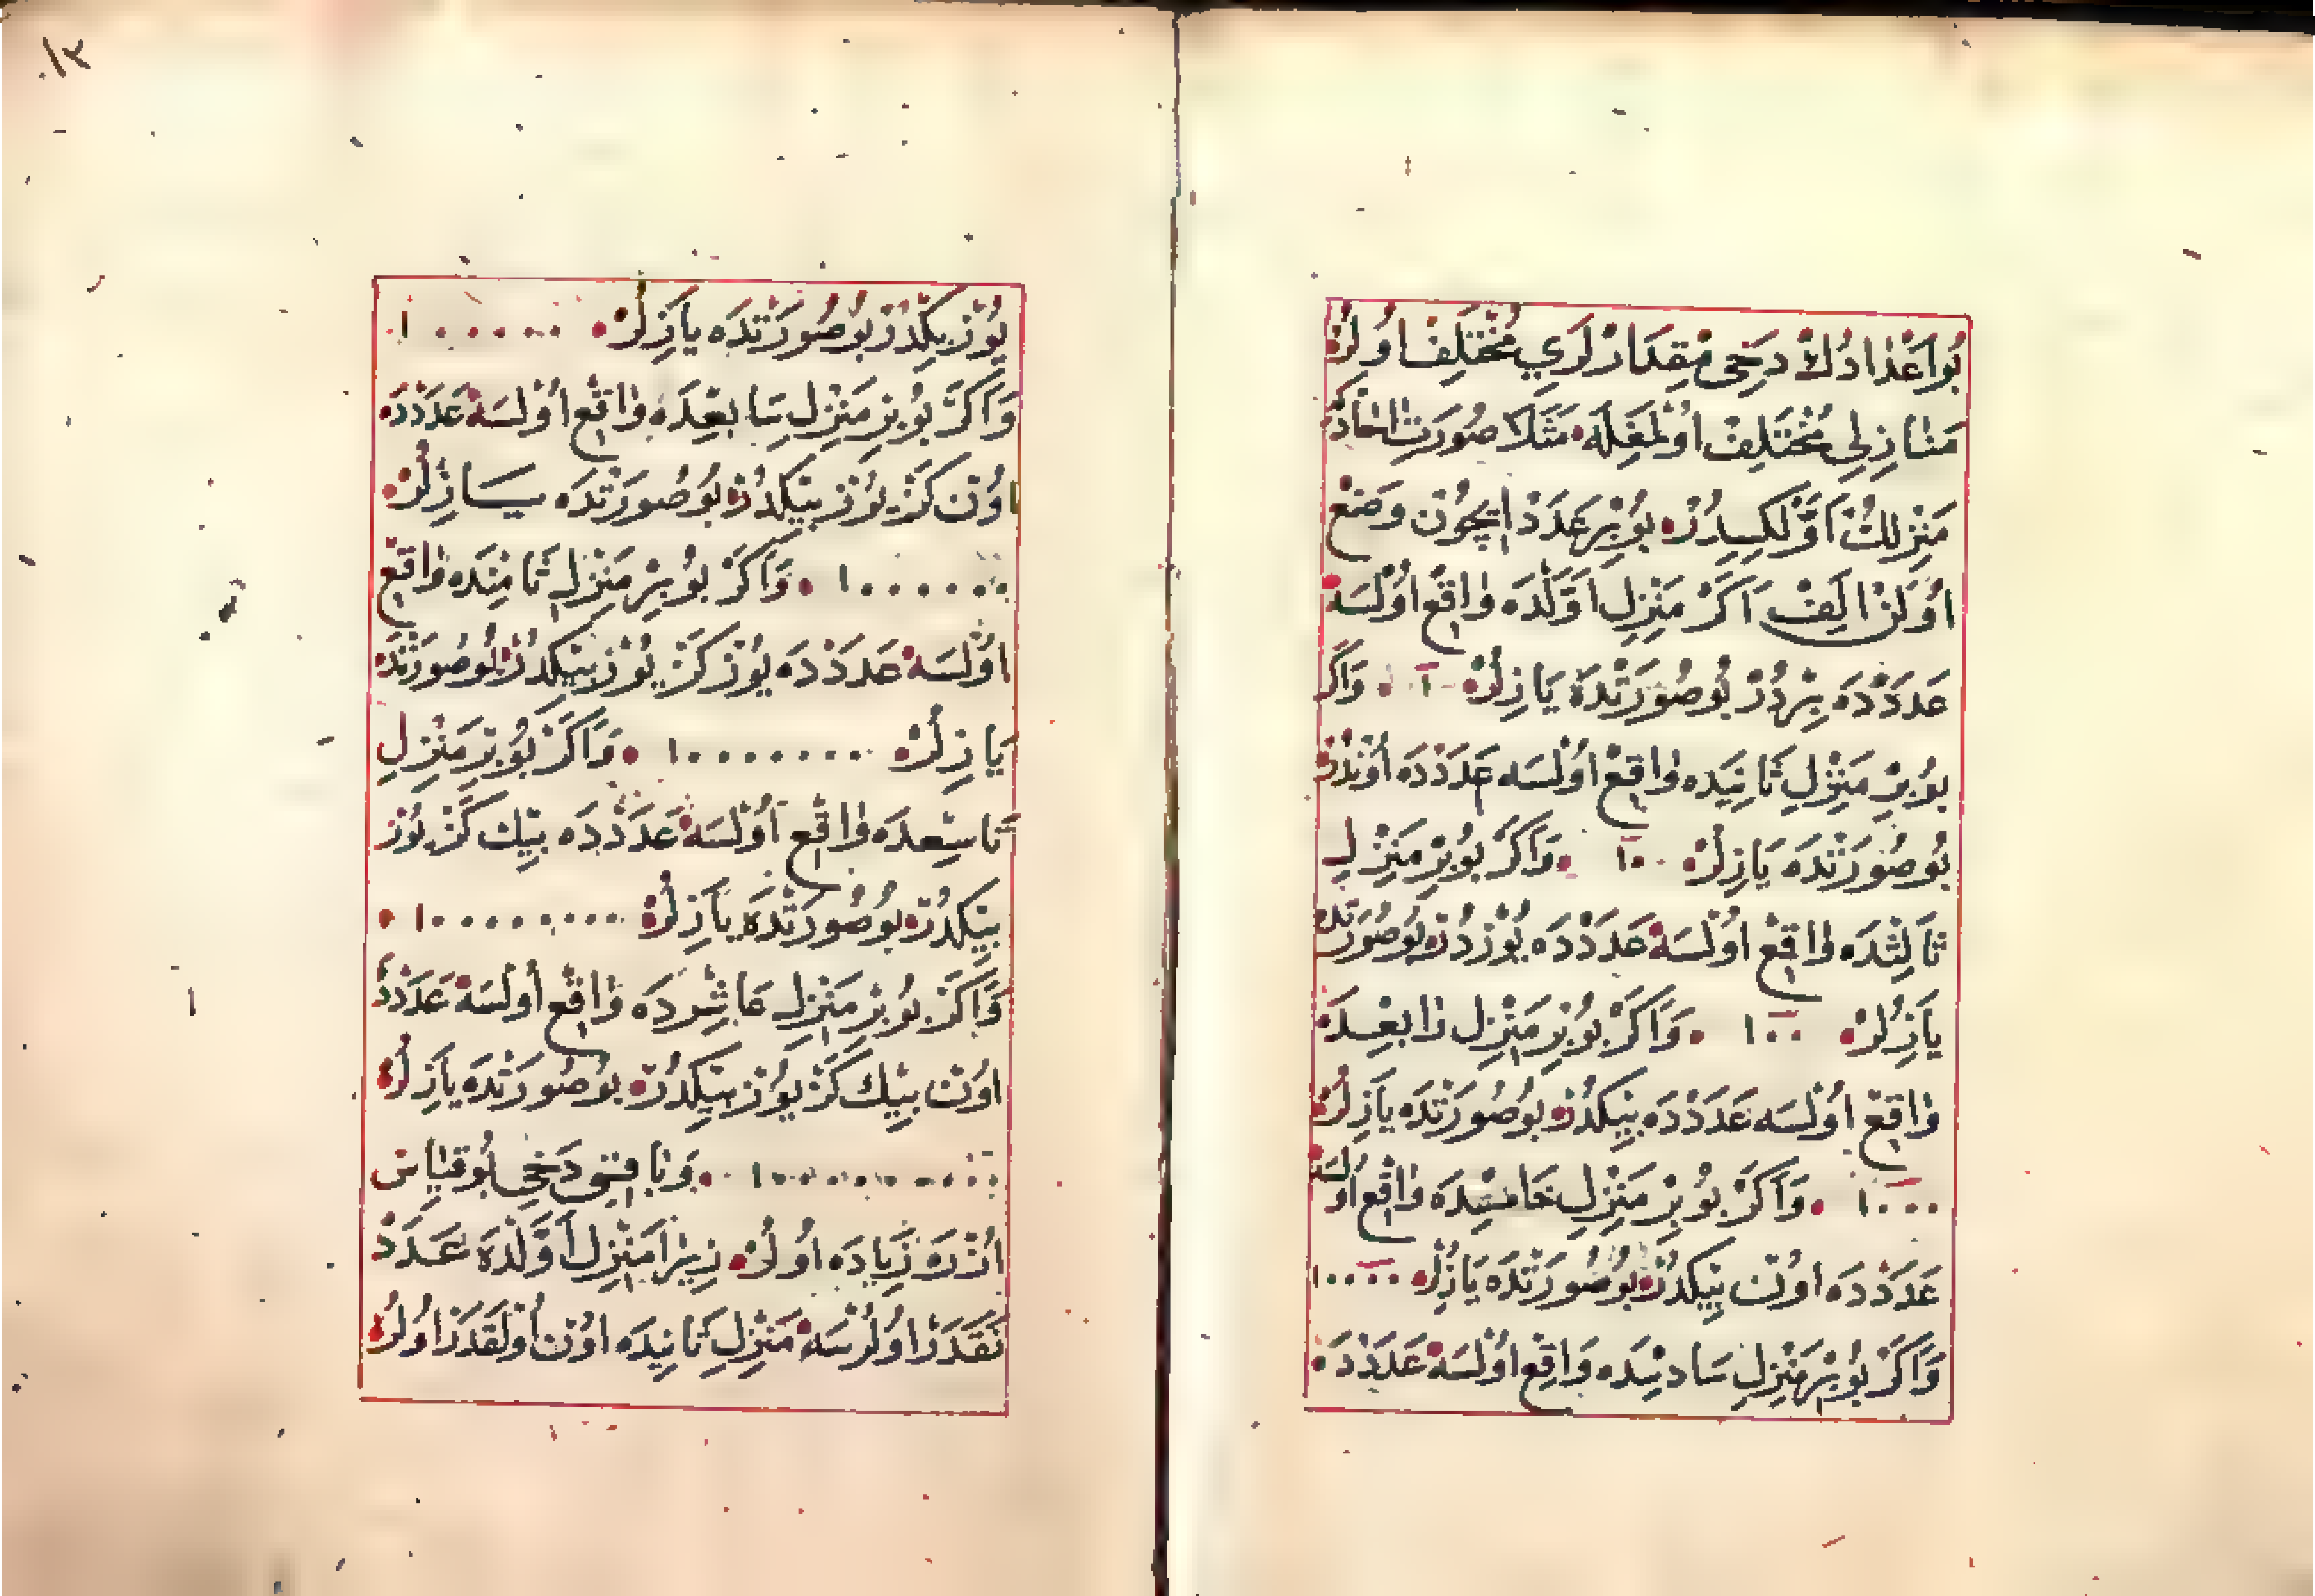 بُو اَعْدَادُكْ دَخِى مِقْدَارْلَرِي مُخْتَلِفْ اُولُرْ
مَنَازِلِى مُخْتَلِفْ اُولْمَغِلَه مَثَلَا صُورَتِ اتّحادْ
مَنْزِلِكْ اَوَّلْكِيسِدُرْ بُو بِرْ عَدَدْ اِيچُونْ وَضِعْ
اُولَنْ اَلِفْ اَكَرْ مَنْزِلِ اَوَّلْدَه وَاقِعْ اُولْسَه
عَدَدْدَه بِرْدُرْ بُو صُورَتْدَه يَازِلُرْ ١ وَاَكَرْ
بُو بِرْ مَنْزِلِ ثَانِيَدَه وَاقِعْ اُولْسَه عَدَدْدَه اُونْدُرْ
بُو صُورَتْدَه يَازِلُرْ ١٠ وَاَكَرْ بُو بِرْ مَنْزِلِ
ثَالِثَدَه وَاقِعْ اُولْسَه عَدَدْدَه يُوزْدُرْ بُو صُورَتْدَه
يَازِلُرْ ١٠٠ وَاَكَرْ بُو بِرْ مَنْزِلِ رَابِعَدَه
وَاقِعْ اُولْسَه عَدَدْدَه بِيكْدُرْ بُو صُورَتْدَه يَازِلُرْ
١٠٠٠ وَاَكَرْ بُو بِرْ مَنْزِلِ خَامِسَدَه وَاقِعْ اُولْسَه
عَدَدْدَه اُونْ بِيكْدُرْ بُو صُورَتْدَه يَازِلُرْ ١٠٠٠٠
وَاَكَرْ بُو بِرْ مَنْزِلِ سَادِسَدَه وَاقِعْ اُولْسَه عَدَدْدَه
١٣
يُوزْ بِيكْدُرْ بُو صُورَتْدَه يَازِلُرْ ١٠٠٠٠٠
وَاَكَرْ بُو بِرْ مَنْزِلِ سَابِعَدَه وَاقِعْ اُولْسَه عَدَدْدَه
اُونْ كَرْ يُوزْ بِيكْدُرْ بُو صُورَتْدَه يَازِلُرْ
١٠٠٠٠٠٠ وَاَكَرْ بُو بِرْ مَنْزِلِ ثَامِنَدَه وَاقِعْ
اُولْسَه عَدَدْدَه يُوزْ كَرْ يُوزْ بِيكْدُرْ بُو صُورَتْدَه
يَازِلُرْ ١٠٠٠٠٠٠٠٠ وَاَكَرْ بُو بِرْ مَنْزِلِ
تَاسِعَدَه وَاقِعْ اُولْسَه عَدَدْدَه بِيكْ كَرْ يُوزْ
بِيكْدُرْ بُو صُورَتْدَه يَازِلُرْ ١٠٠٠٠٠٠٠٠٠
وَاَكَرْ بُو بِرْ مَنْزِلِ عَاشِرَدَه وَاقِعْ اُولْسَه عَدَدْدَه
اُونْ بِيكْ كَرْ يُوزْ بِيكْدُرْ بُو صُورَتْدَه يَازِلُرْ
١٠٠٠٠٠٠٠٠٠٠ وَبَاقِيسِى دَخِى بُو قِيَاسْ
اُزْرَه زِيَادَه اُولُرْ زِيرَا مَنْزِلِ اَوَّلْدَه عَدَدْ
نَقَدَرْ اُولُرْسَه مَنْزِلِ ثَانِيَدَه اُونْ اُولْقَدَرْ اُولُرْ